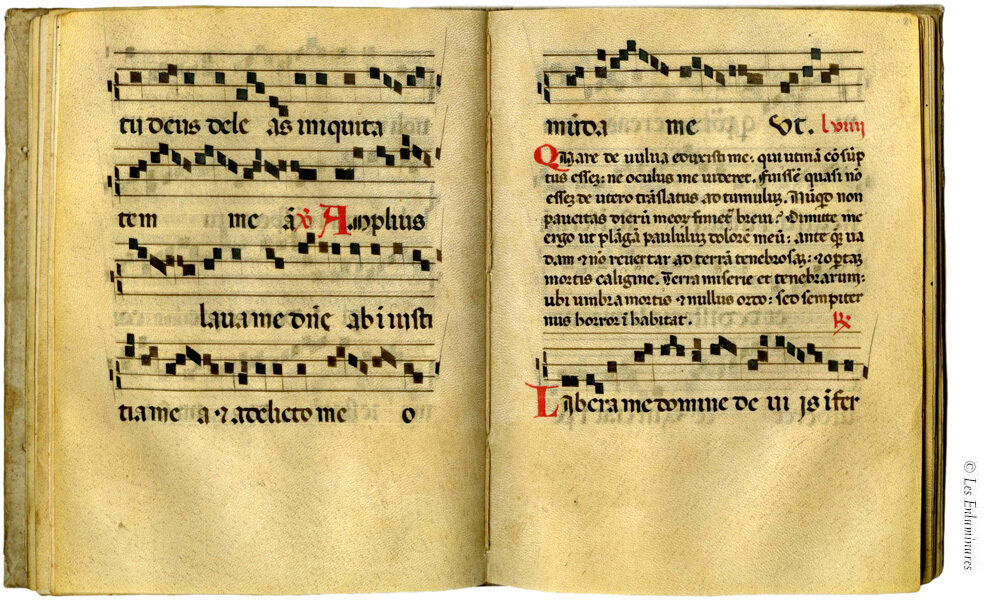 tu deus dele as iniquita
tem me ã ℣ Amplius
lava me dñe ab iniusti
tia me a ⁊ a delicto me o
mũda me Vt. lviiii
Quare de uulua eduxisti me: qui utinã cõsũp
tus essez: ne oculus me uideret. fuissẽ quasi nõ
essez de utero trãslatus ad tumuluz. Nũqd non
paucitas dierũ meoꝝ finiet̃ breui? Dimitte me
ergo ut plãgã paululuz dolorẽ meũ: ante q̃ ua
dam ⁊ nõ reuertar ad terrã tenebrosaz: ⁊ optaz
mortis caligine. Terra miserie et tenebrarum:
ubi umbra mortis ⁊ nullus ordo: sed sempiter
nus horror ĩhabitat. ℟
Libera me domine de ui is ĩfer
© Les Enluminures